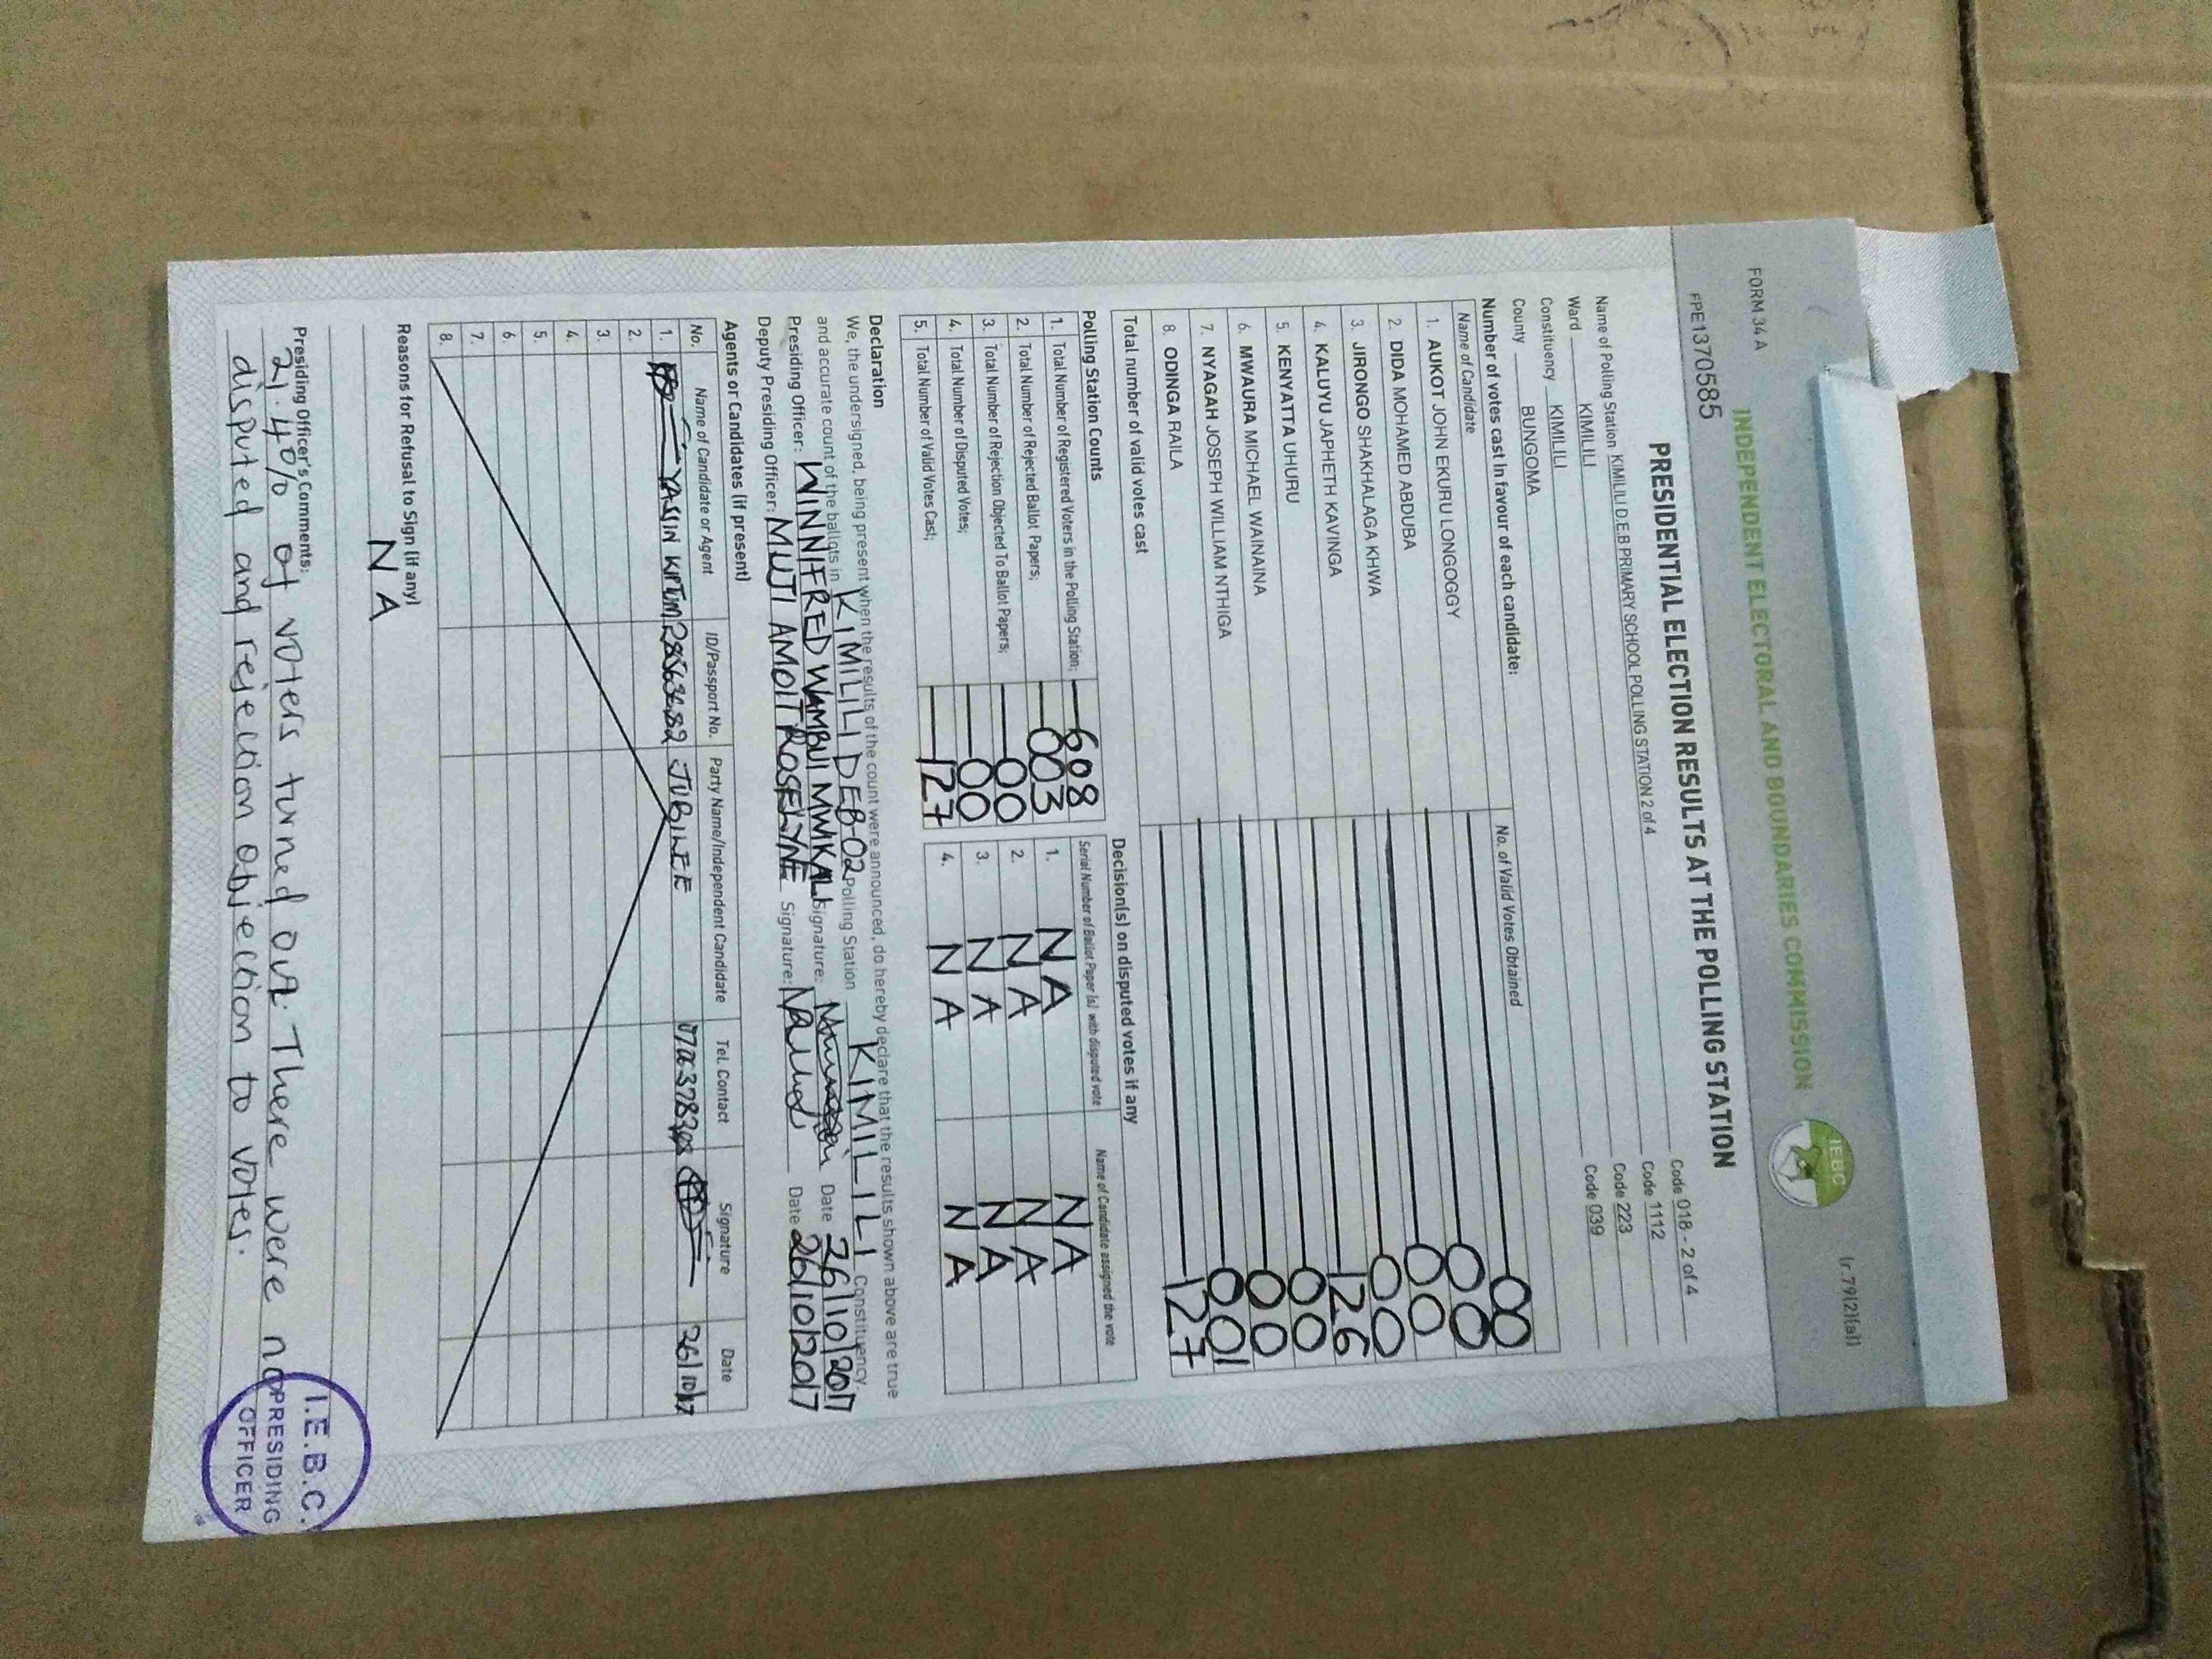 FORM 34 A
(r.79(2)(a))
INDEPENDENT ELECTORAL AND BOUNDARIES COMMISSION
IEBC
PRESIDENTIAL ELECTION RESULTS AT THE POLLING STATION
FPE1370585
Name of Polling Station KIMILILI D.E.B PRIMARY SCHOOL POLLING STATION 2 of 4 Code 018 - 2 of 4
Ward KIMILILI Code 1112
Constituency KIMILILI Code 223
County BUNGOMA Code 039
Number of votes cast in favour of each candidate:
Name of Candidate No. of Valid Votes Obtained
1. AUKOT JOHN EKURU LONGOGGY 00
2. DIDA MOHAMED ABDUBA 00
3. JIRONGO SHAKHALAGA KHWA 00
4. KALUYU JAPHETH KAVINGA 00
5. KENYATTA UHURU 126
6. MWAURA MICHAEL WAINAINA 00
7. NYAGAH JOSEPH WILLIAM NTHIGA 00
8. ODINGA RAILA 001
Total number of valid votes cast 127
Polling Station Counts
1. Total Number of Registered Voters in the Polling Station; 608
2. Total Number of Rejected Ballot Papers; 003
3. Total Number of Rejection Objected To Ballot Papers; 00
4. Total Number of Disputed Votes; 00
5. Total Number of Valid Votes Cast; 127
Decision(s) on disputed votes if any
Serial Number of Ballot Paper (s) with disputed vote Name of Candidate assigned the vote
1. NA NA
2. NA NA
3. NA NA
4. NA NA
Declaration
We, the undersigned, being present when the results of the count were announced, do hereby declare that the results shown above are true
and accurate count of the ballots in KIMILILI DEB-02 Polling Station KIMILILI Constituency.
Presiding Officer: WINNIFRED WAMBUI MWIKALI Signature: Date 26/10/2017
Deputy Presiding Officer: MUJI AMOIT ROSELYNE Signature: Date 26/10/2017
Agents or Candidates (if present)
No. Name of Candidate or Agent ID/Passport No. Party Name/Independent Candidate Tel. Contact Signature Date
1. YASSIN JUBILEE 26/10/17
2.
3.
4.
5.
6.
7.
8.
Reasons for Refusal to Sign (if any)
NA
Presiding Officer's Comments:
21.40% of voters turned out. There were no
disputed and rejection objection to votes.
I.E.B.C.
PRESIDING
OFFICER